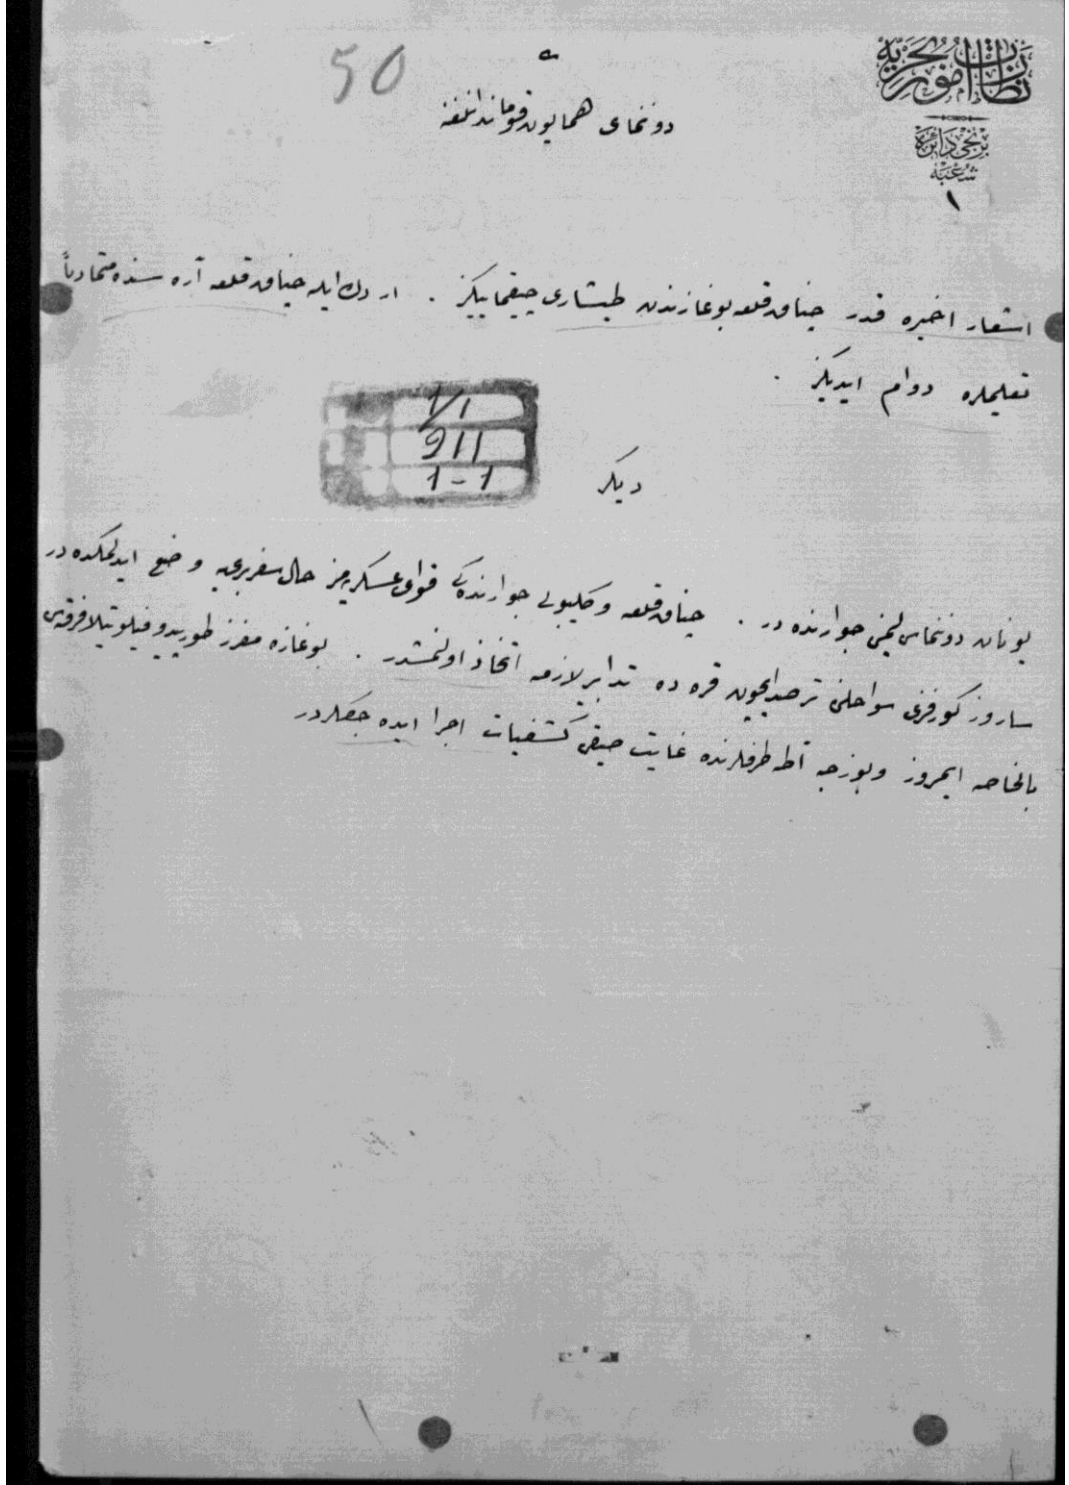 نظارت امور بحریه
برنجی دائره
شعبه
١
50
دوننمای همایون قوماندانلغنه
اشعار اخیره قدر چناق قلعه بوغازندن طیشاری چیقمایکز . اردك ایله چناق قلعه آره سنده متمادیاً
تعلیملره دوام ایدیکز .
1/1
911
1-1
دیکر
یونان دوننماسی لیمنی جوارنده در . چناق قلعه و کلیبولی جوارنده کی قوای عسکریه مز حال سفربری یه وضع ایدلمکده در
ساروز کورفزی سواحلنی ترصد ایچون قره ده تدابیر لازمه اتخاذ اولنمشدر . بوغازه مفرز طورپیدو فیلوتیلا فرقه سی
بالخاصه ایمروز و بوزجه آطه طرفلرنده غایت صیقی کشفیات اجرا ایده جکلردر